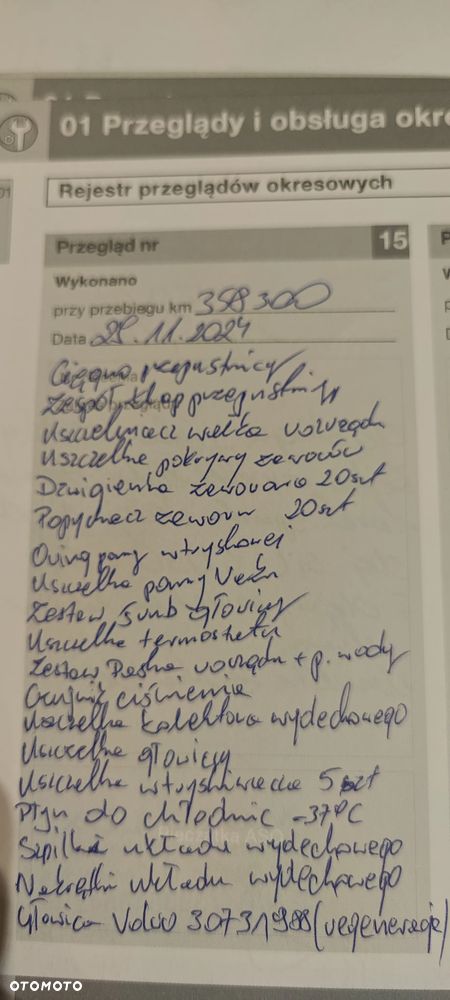 01 Przeglądy i obsługa okre
01
Rejestr przeglądów okresowych
Przegląd nr 15
Wykonano
przy przebiegu km 398300
Data 28.11.2024
Cięgno przepustnicy
Zespół klap przepustnicy
Uszczelniacz wałka rozrządu
Uszczelka pokrywy zaworów
Dźwigienka zaworowa 20szt
Popychacz zaworu 20szt
Oring pompy wtryskowej
Uszczelka pompy Vakn
Zestaw śrub głowicy
Uszczelka termostatu
Zestaw Paska rozrządu + p. wody
Czujnik ciśnienia
Uszczelka kolektora wydechowego
Uszczelka głowicy
Uszczelka wtryskiwacza 5szt
Płyn do chłodnic -37°C
Szpilki układu wydechowego
Nakrętki układu wydechowego
Głowica Volvo 30731988 (regeneracja)
OTOMOTO